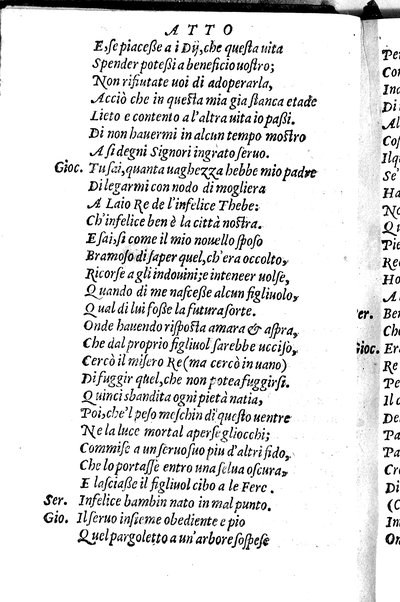 ATTO
E, se piaceße a i Dij, che questa uita
Spender poteßi a beneficio uostro;
Non rifiutate uoi di adoperarla,
Acciò che in questa mia gia stanca etade
Lieto e contento a l'altra uita io paßi.
Di non hauermi in alcun tempo mostro
A si degni Signori ingrato seruo.
Gioc. Tu sai, quanta uaghezza hebbe mio padre
Di legarmi con nodo di mogliera
A Laio Re de l'infelice Thebe:
Ch'infelice ben è la città nostra.
E sai, si come il mio nouello sposo
Bramoso di saper quel, ch'era occolto,
Ricorse a gli indouini; e inteneer uolse,
Quando di me nasceße alcun figliuolo,
Qual di lui foße la futura sorte.
Onde hauendo risposta amara & aspra,
Che dal proprio figliuol sarebbe ucciso,
Cercò il misero Re (ma cercò in uano)
Di fuggir quel, che non potea fuggirsi.
Quinci sbandita ogni pietà natia,
Poi, che'l peso meschin di questo uentre
Ne la luce mortal aperse gliocchi;
Commise a un seruo suo piu d'altri fido,
Che lo portasse entro una selua oscura,
E lasciaße il figliuol cibo a le Fere.
Ser. Infelice bambin nato in mal punto.
Gio. Il seruo insieme obediente e pio
Quel pargoletto a un'arbore sospese